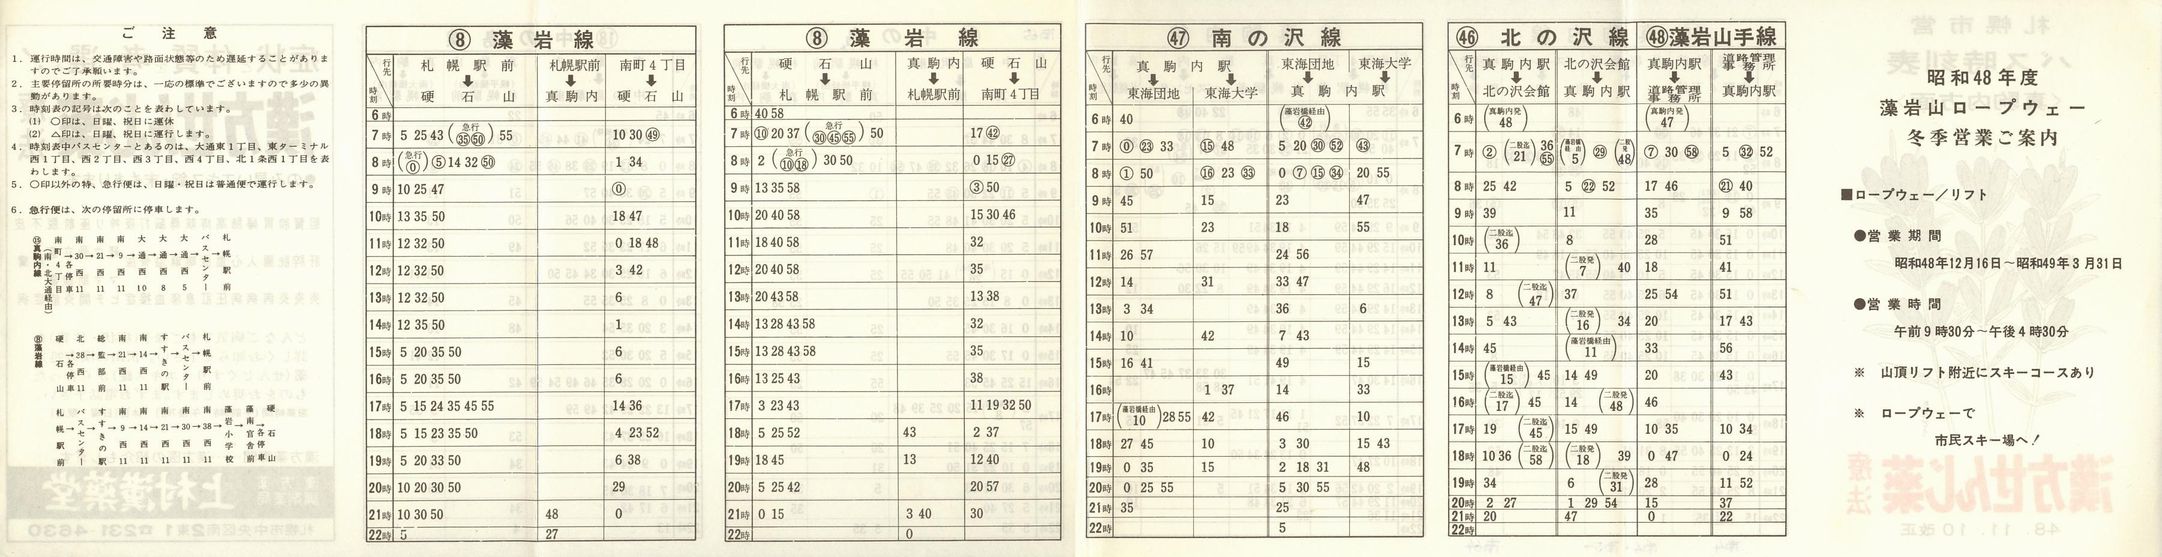 ご注意
1．運行時間は、交通障害や路面状態等のため遅延することがありますのでご了承願います。
2．主要停留所の所要時分は、一応の標準でございますので多少の異動があります。
3．時刻表の記号は次のことを表わしています。
⑴ ○印は、日曜、祝日に運休
⑵ △印は、日曜、祝日に運行します。
4．時刻表中バスセンターとあるのは、大通東1丁目、東ターミナル西1丁目、西2丁目、西3丁目、西4丁目、北1条西1丁目を表わします。
5．○印以外の特、急行便は、日曜・祝日は普通便で運行します。
6．急行便は、次の停留所に停車します。
⑧ 藻岩線
行先 時刻
札幌駅前 → 硬石山
札幌駅前 → 真駒内
南町4丁目 → 硬石山
6時
7時 5 25 43 (急行 ㉟㊿) 55 | | 10 30 ㊾
8時 (急行 ⓪) ⑤ 14 32 ㊿ | | 1 34
9時 10 25 47 | | ⓪
10時 13 35 50 | | 18 47
11時 12 32 50 | | 0 18 48
12時 12 32 50 | | 3 42
13時 12 32 50 | | 6
14時 12 35 50 | | 1
15時 5 20 35 50 | | 6
16時 5 20 35 50 | | 6
17時 5 15 24 35 45 55 | | 14 36
18時 5 15 23 35 50 | | 4 23 52
19時 5 20 33 50 | | 6 38
20時 10 20 30 50 | | 29
21時 10 30 50 | 48 | 0
22時 5 | 27 |
⑧ 藻岩線
行先 時刻
硬石山 → 札幌駅前
真駒内 → 札幌駅前
硬石山 → 南町4丁目
6時 40 58
7時 ⑩ 20 37 (急行 ㉚㊺(55)) 50 | | 17 ㊷
8時 2 (急行 ⑩⑱) 30 50 | | 0 15 ㉗
9時 13 35 58 | | ③ 50
10時 20 40 58 | | 15 30 46
11時 18 40 58 | | 32
12時 20 40 58 | | 35
13時 20 43 58 | | 13 38
14時 13 28 43 58 | | 32
15時 13 28 43 58 | | 35
16時 13 25 43 | | 38
17時 3 23 43 | | 11 19 32 50
18時 5 25 52 | 43 | 2 37
19時 18 45 | 13 | 12 40
20時 5 25 42 | | 20 57
21時 0 15 | 3 40 | 30
22時 | 0 |
㊼ 南の沢線
行先 時刻
真駒内駅 → 東海団地
真駒内駅 → 東海大学
東海団地 → 真駒内駅
東海大学 → 真駒内駅
6時 40 | | (藻岩橋経由 ㊷) |
7時 ⓪ ㉓ 33 | ⑮ 48 | 5 20 ㉚ (52) | ㊸
8時 ① 50 | ⑯ 23 ㉝ | 0 ⑦ ⑮ ㉞ | 20 55
9時 45 | 15 | 23 | 47
10時 51 | 23 | 18 | 55
11時 26 57 | | 24 56 |
12時 14 | 31 | 33 47 |
13時 3 34 | | 36 | 6
14時 10 | 42 | 7 43 |
15時 16 41 | | 49 | 15
16時 | 1 37 | 14 | 33
17時 (藻岩橋経由 10) 28 55 | 42 | 46 | 10
18時 27 45 | 10 | 3 30 | 15 43
19時 0 35 | 15 | 2 18 31 | 48
20時 0 25 55 | | 5 30 55 |
21時 35 | | 25 |
22時 | | 5 |
㊻ 北の沢線 ㊽ 藻岩山手線
行先 時刻
真駒内駅 → 北の沢会館
北の沢会館 → 真駒内駅
真駒内駅 → 道路管理事務所
道路管理事務所 → 真駒内駅
6時 (真駒内発 48) | | (真駒内発 47) |
7時 ② (二股迄 21) 36 (55) | (藻岩橋経由 5) ㉙ (二股発 48) | ⑦ 30 (58) | 5 ㉜ 52
8時 25 42 | 5 ㉒ 52 | 17 46 | ㉑ 40
9時 39 | 11 | 35 | 9 58
10時 (二股迄 36) | 8 | 28 | 51
11時 11 | (二股発 7) 40 | 18 | 41
12時 8 (二股迄 47) | 37 | 25 54 | 51
13時 5 43 | (二股発 16) 34 | 20 | 17 43
14時 45 | (藻岩橋経由 11) | 33 | 56
15時 (藻岩橋経由 15) 45 | 14 49 | 20 | 43
16時 (二股迄 17) 45 | 14 (二股発 48) | 46 |
17時 19 (二股迄 45) | 15 49 | 10 35 | 10 34
18時 10 36 (二股迄 58) | (二股発 18) 39 | 0 47 | 0 24
19時 34 | 6 (二股発 31) | 28 | 11 52
20時 2 27 | 1 29 54 | 15 | 37
21時 20 | 47 | 0 | 22
22時
昭和48年度
藻岩山ロープウェー
冬季営業ご案内
■ロープウェー／リフト
●営業期間
昭和48年12月16日～昭和49年3月31日
●営業時間
午前9時30分～午後4時30分
※ 山頂リフト附近にスキーコースあり
※ ロープウェーで
市民スキー場へ！